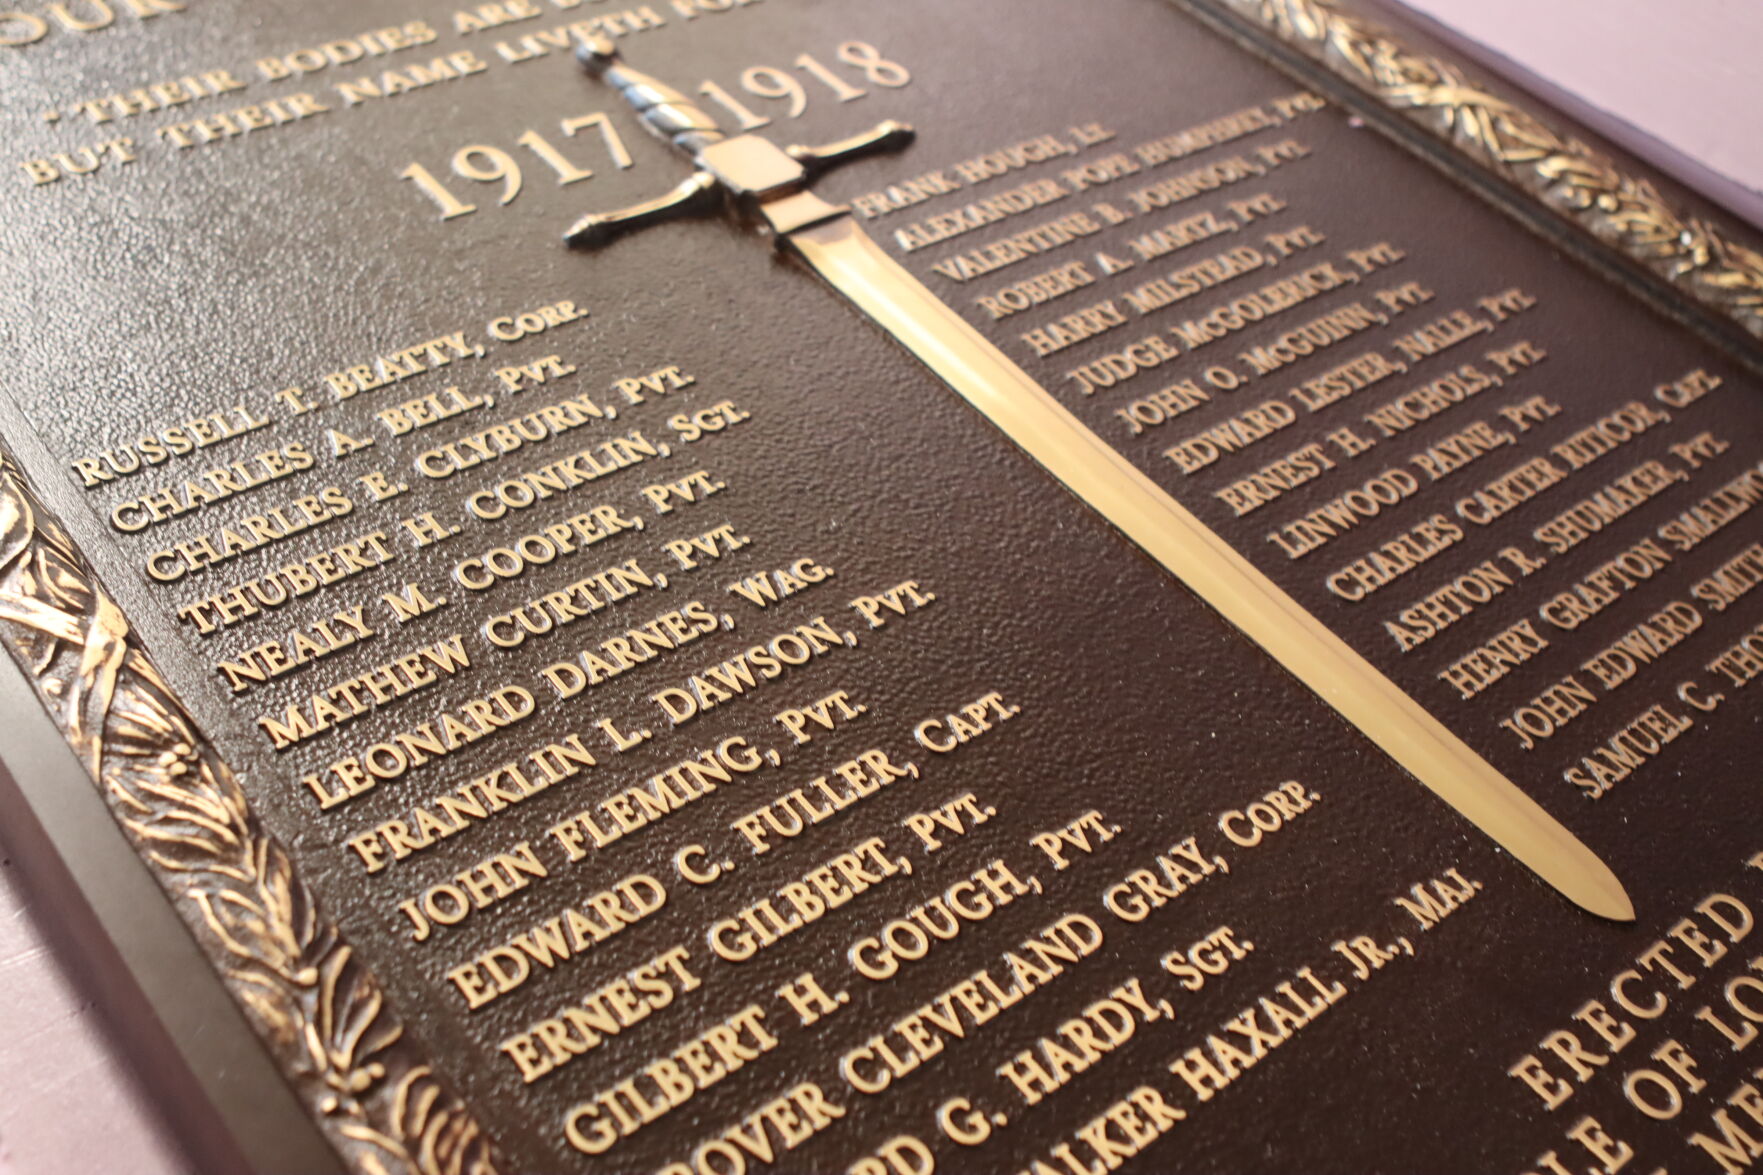 OUR
"THEIR BODIES ARE
BUT THEIR NAME LIVETH
1917 1918
RUSSELL T. BEATTY, CORP.
CHARLES A. BELL, PVT.
CHARLES E. CLYBURN, PVT.
THUBERT H. CONKLIN, SGT.
NEALY M. COOPER, PVT.
MATHEW CURTIN, PVT.
LEONARD DARNES, WAG.
FRANKLIN L. DAWSON, PVT.
JOHN FLEMING, PVT.
EDWARD C. FULLER, CAPT.
ERNEST GILBERT, PVT.
GILBERT H. GOUGH, PVT.
ROVER CLEVELAND GRAY, CORP.
RD G. HARDY, SGT.
ALKER HAXALL JR., MAJ.
FRANK HOUGH, LT.
ALEXANDER POPE HUMPHREY, PVT.
VALENTINE B. JOHNSON, PVT.
ROBERT A. MARTZ, PVT.
HARRY MILSTEAD, PVT.
JUDGE McGOLERICK, PVT.
JOHN O. McGUINN, PVT.
EDWARD LESTER NALLE, PVT.
ERNEST H. NICHOLS, PVT.
LINWOOD PAYNE, PVT.
CHARLES CARTER RITICOR, CAPT.
ASHTON R. SHUMAKER, PVT.
HENRY GRAFTON SMALLW
JOHN EDWARD SMITH
SAMUEL C. THO
ERECTED
LE OF LO
ME